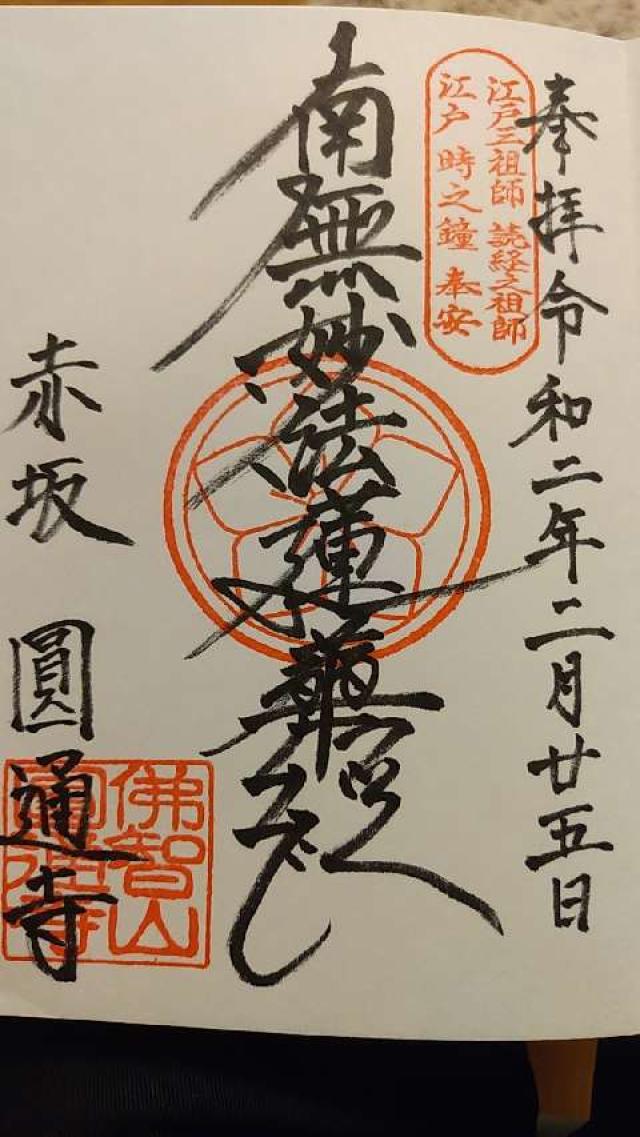 奉拝令和二年二月廿五日
江戸三祖師 読経之祖師
江戸 時之鐘 奉安
南無妙法蓮華経
赤坂 圓通寺
佛智山
圓通寺